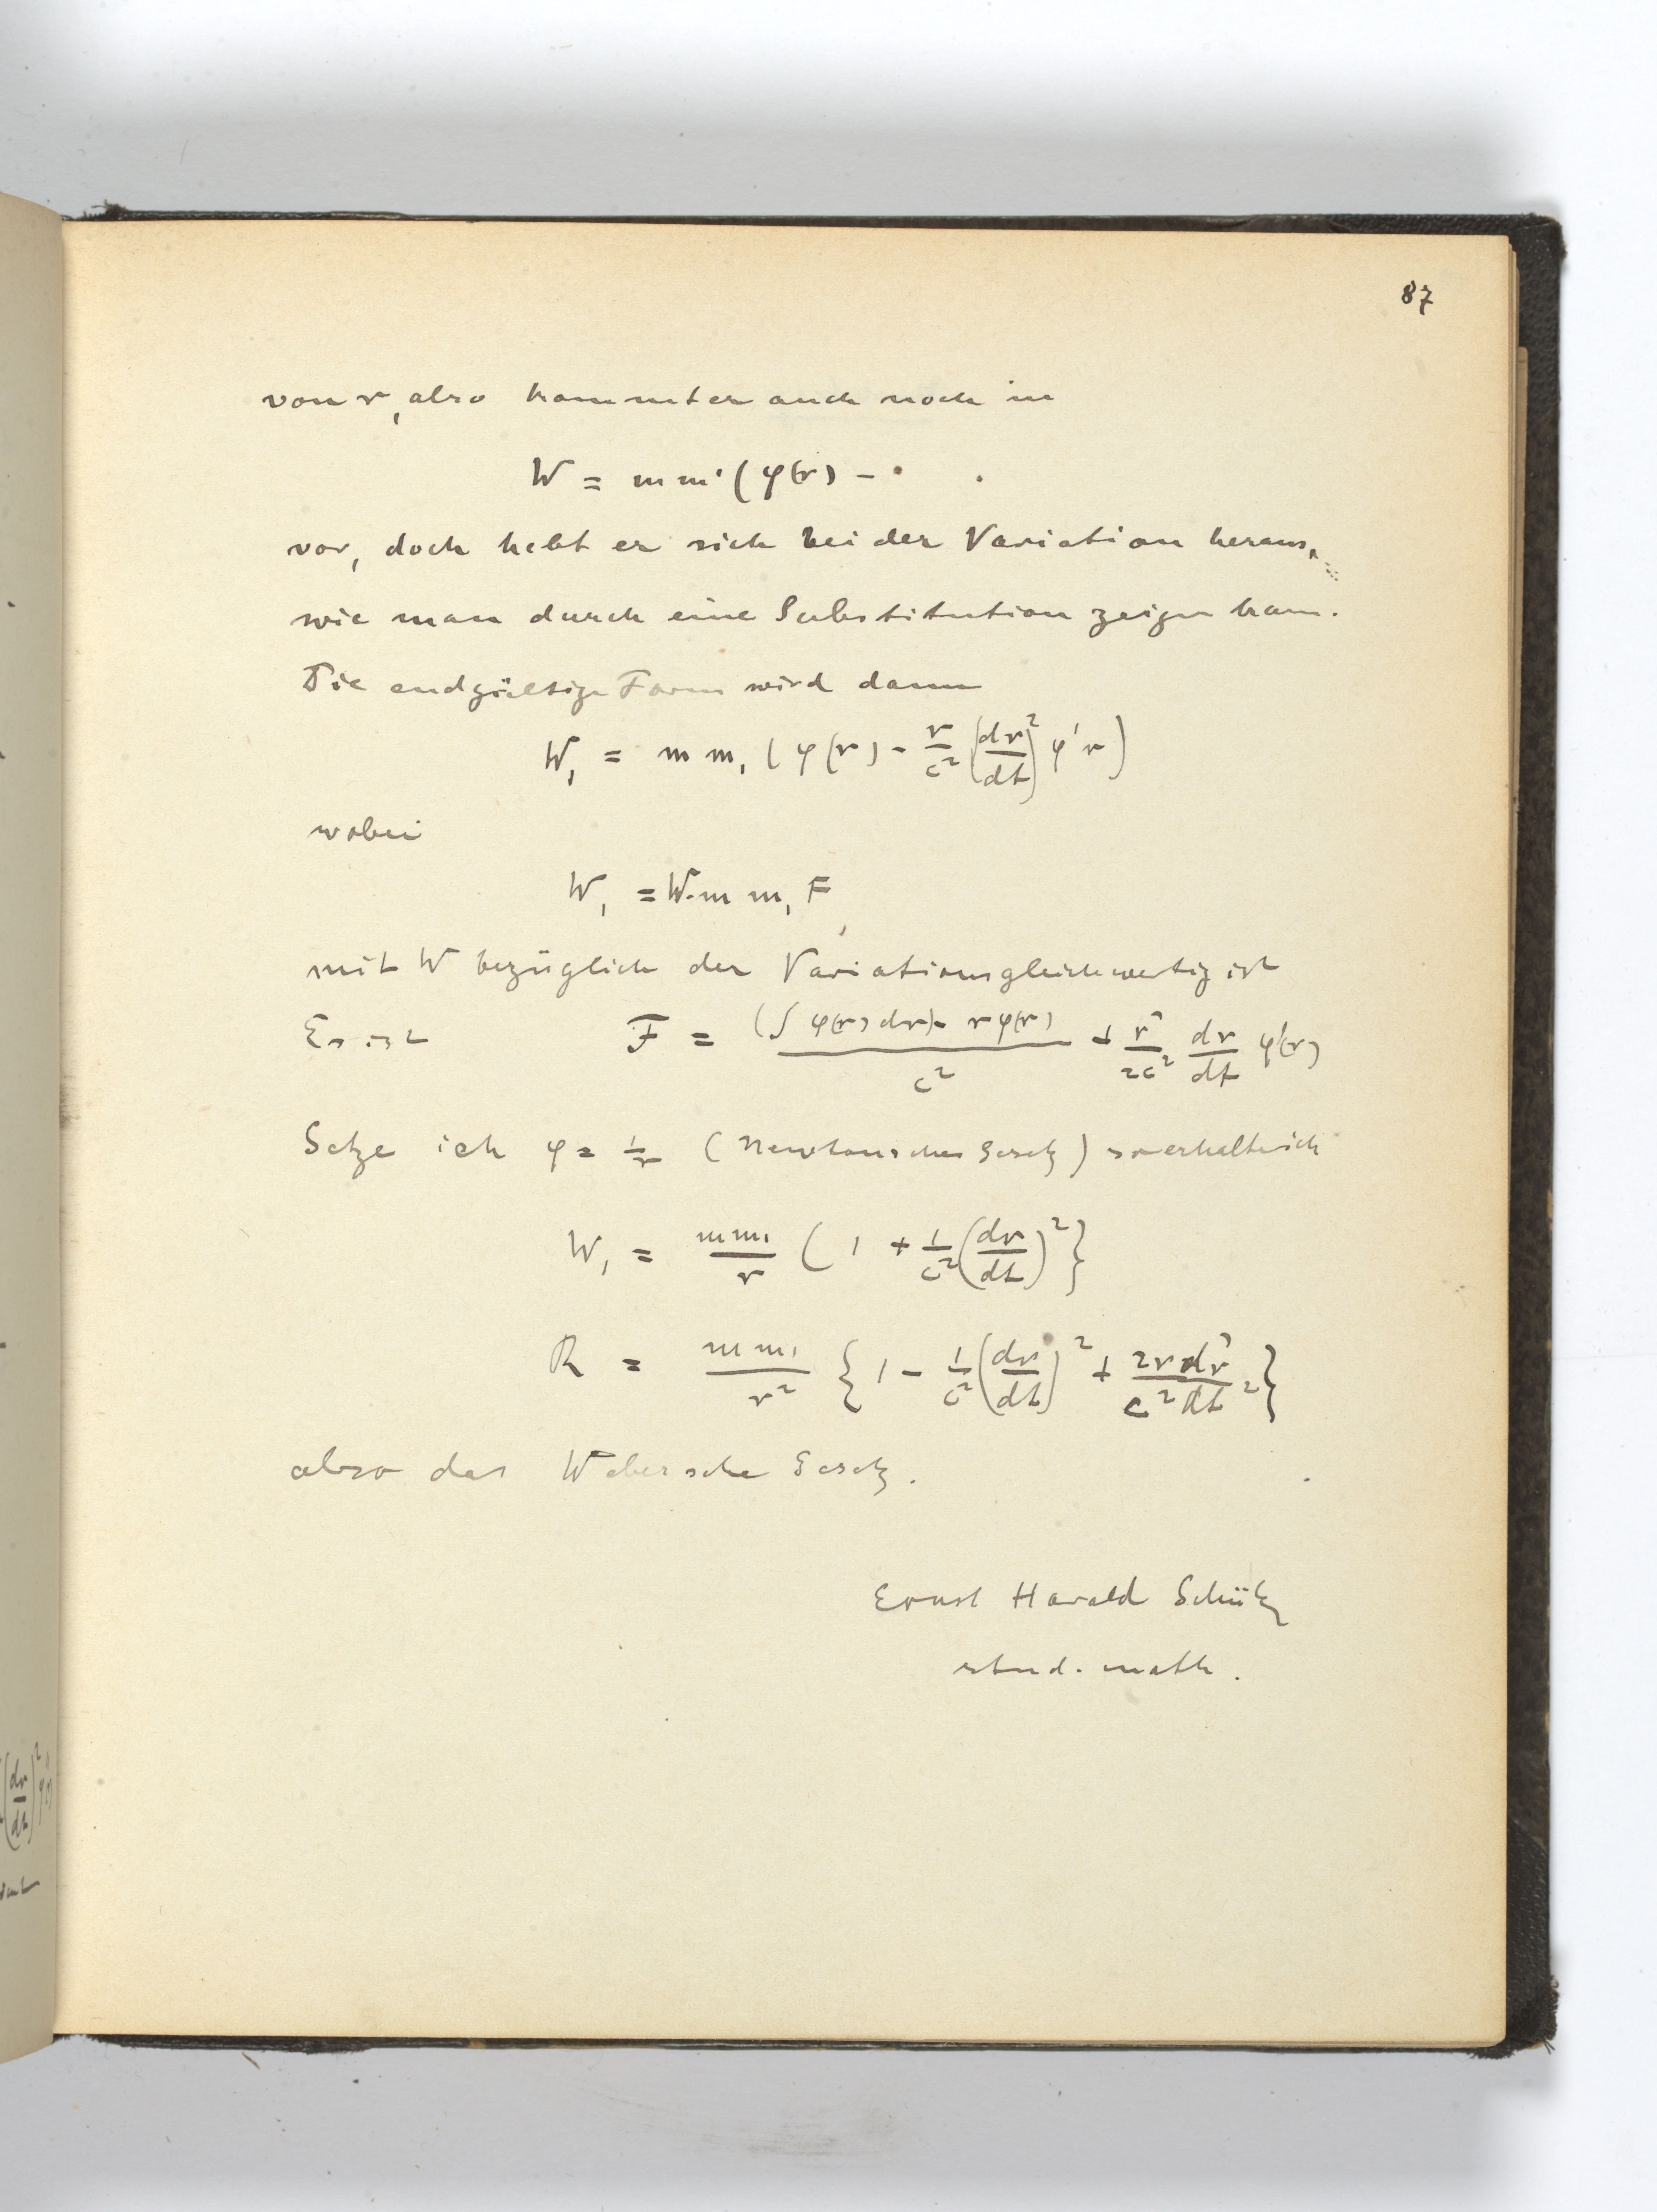 87
von r, also kommt er auch noch in
W = m m' ( φ(r) - · ·
vor, doch hebt er sich bei der Variation heraus,
wie man durch eine Substitution zeigen kann.
Die endgültige Form wird dann
W₁ = m m₁ ( φ(r) - r/c² (dr/dt)² φ'r )
wobei
W₁ = W - m m₁ F
mit W bezüglich der Variation gleichwertig ist
Es ist F = ((∫ φ(r) dr) - r φ(r))/c² + r²/2c² dr/dt φ'(r)
Setze ich φ = 1/r (Newtonsches Gesetz) so erhalte ich
W₁ = m m₁/r ( 1 + 1/c² (dr/dt)² }
R = m m₁/r² { 1 - 1/c² (dr/dt)² + 2r d²r/c² dt² }
also das Webersche Gesetz.
Ernst Harald Schütz
stud. math.